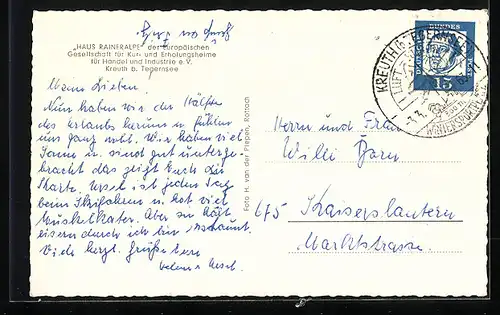 "HAUS RAINERALPE" der Europäischen
Gesellschaft für Kur- und Erholungsheime
für Handel und Industrie e. V.
Kreuth b. Tegernsee
Meine Lieben.
Nun haben wir die Hälfte
des Urlaubs herum u. fühlen
uns ganz wohl. Wir haben viel
Sonne u. sind gut unterge-
bracht das zeigt Euch die
Karte. Ursel ist jeden Tag
beim Skifahren u. hat viel
Muskelkater. Aber sie hält
eisern durch ich bin erstaunt.
Viele herzl. Grüße
Ursel
Foto H. van der Piepen, Rottach
DEUTSCHE BUNDESPOST
15
KREUTH (b. TEGERNSEE)
LUFT
WINTERSPORTPLATZ
Herrn und Frau
Willi
675 Kaiserslautern
Marktstrasse